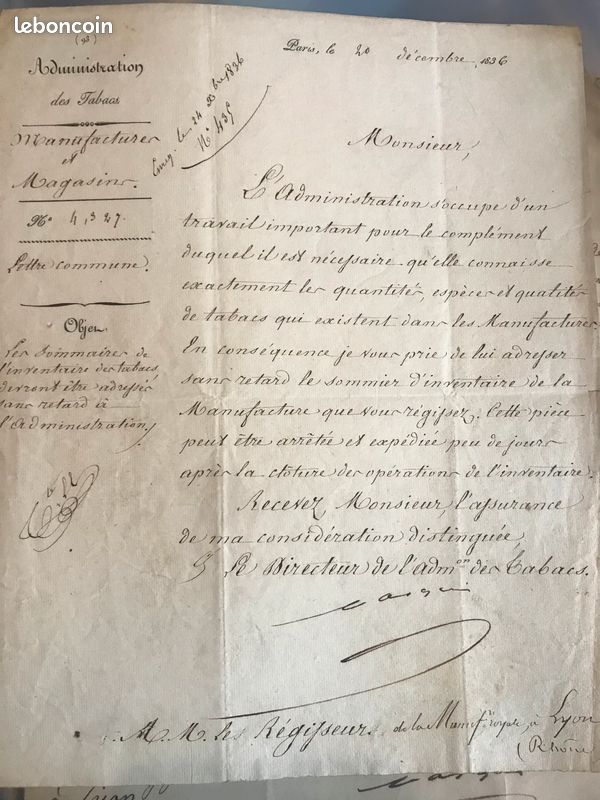 leboncoin
(93)
Administration
des Tabacs
Manufactures
et
Magasins.
No. 4,327.
Lettre commune.
Objet
Les Sommaires de
l'inventaire des tabacs
devront être adressés
sans retard à
l'Administration
Paris, le 20 décembre, 1836
Enreg. le 24 Xbre 1836
No. 435
Monsieur,
L'Administration s'occupe d'un
travail important pour le complément
duquel il est nécessaire qu'elle connaisse
exactement les quantités, espèces et qualités
de tabacs qui existent dans les Manufactures
En conséquence je vous prie de lui adresser
sans retard le sommier d'inventaire de la
Manufacture que vous régissez. Cette pièce
peut être arrêtée et expédiée peu de jours
après la cloture des opérations de l'inventaire.
Recevez, Monsieur, l'assurance
de ma considération distinguée
Le Directeur de l'Admon des Tabacs.
A M.M. les Régisseurs de la Manufre royale, à Lyon
(Rhône